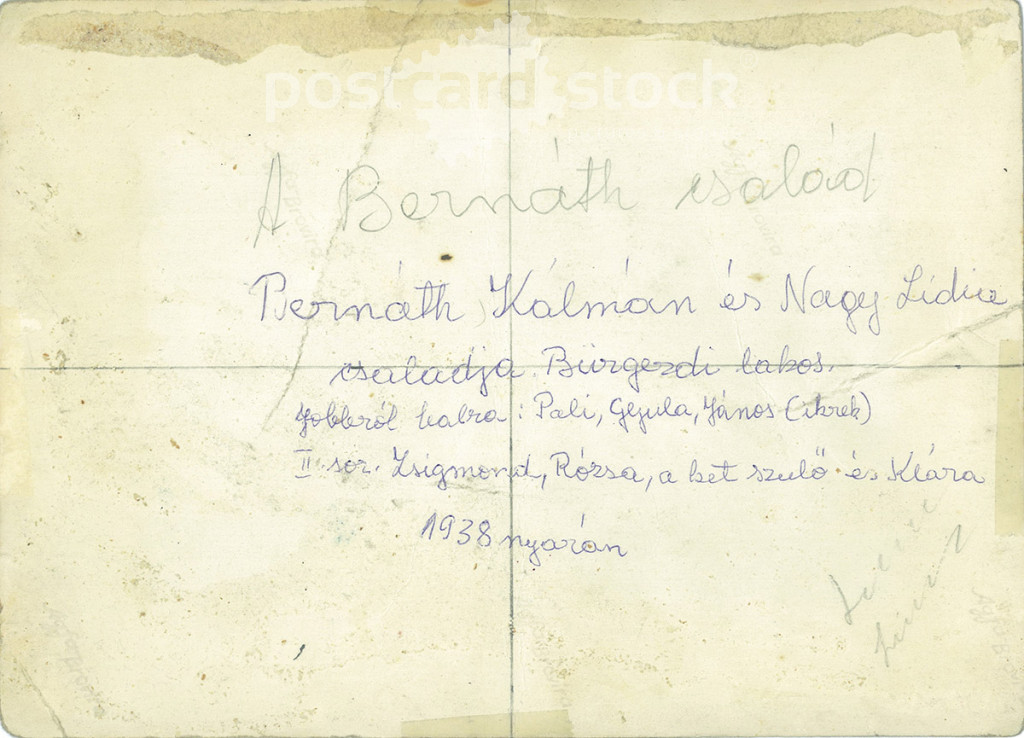 postcard stock
A Bernáth család
Bernáth Kálmán és Nagy Lídia
családja Bürgezdi lakos.
Jobbról balra: Pali, Gyula, János (ikrek)
II sor. Zsigmond, Rózsa, a két szülő és Klára
1938 nyarán